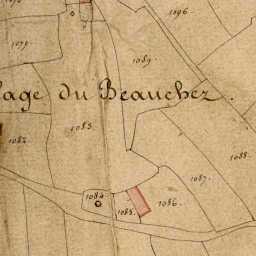 1096
1089
lage du Beauchez.
1083
1082
1088
1087
1084
1085
1086